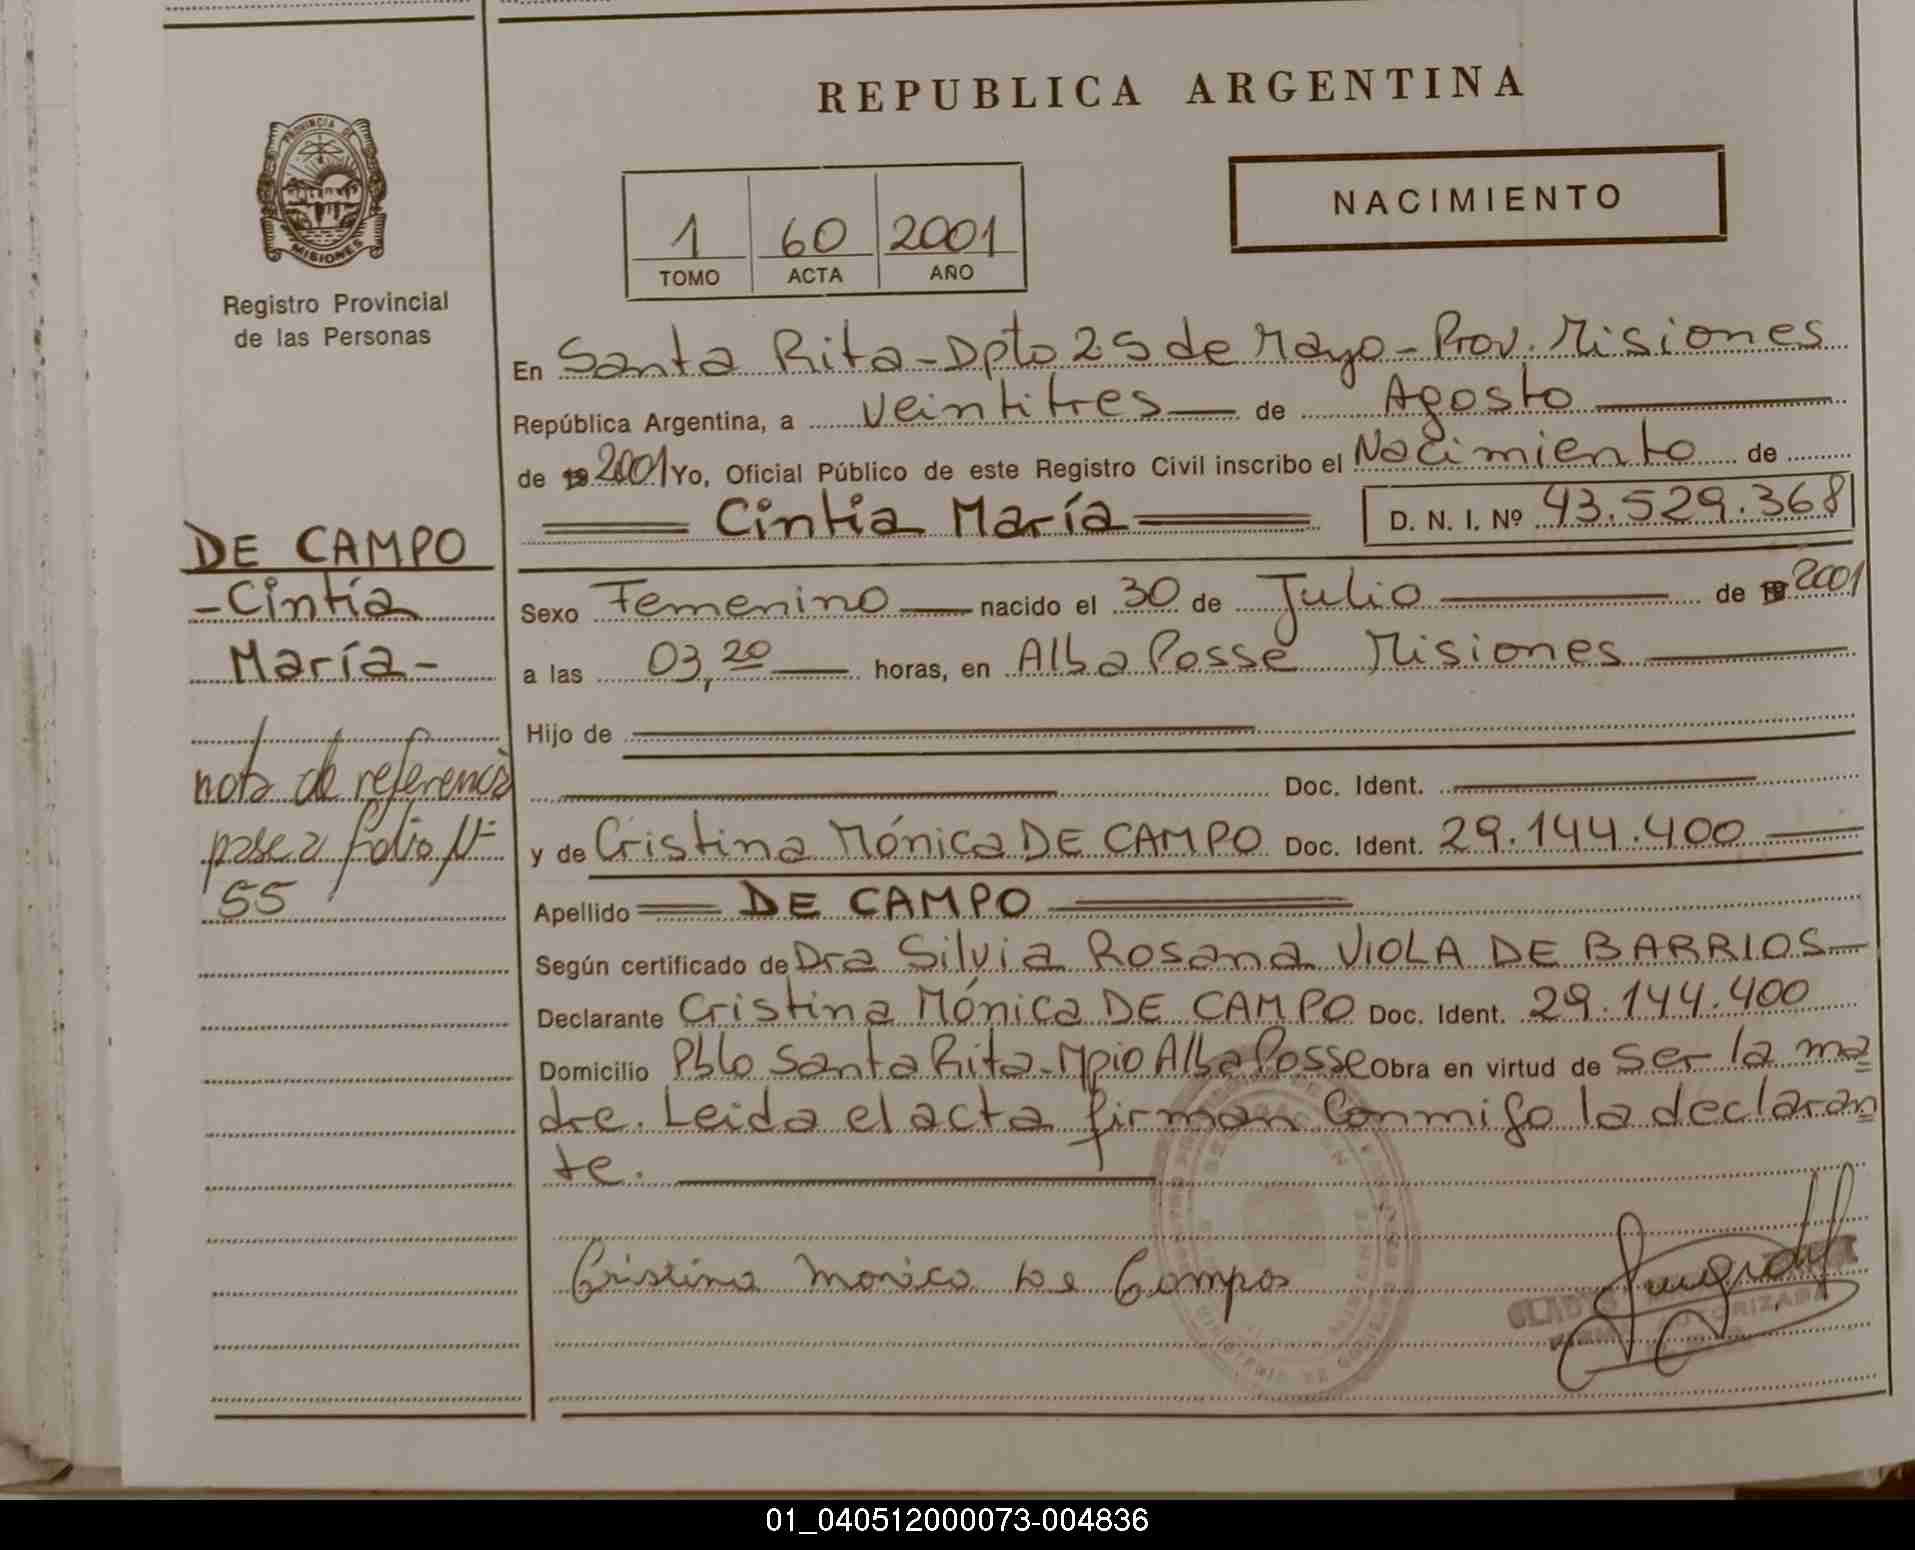 REPUBLICA ARGENTINA
PROVINCIA DE
MISIONES
Registro Provincial
de las Personas
1 60 2001
TOMO ACTA AÑO
NACIMIENTO
En Santa Rita-Dpto 25 de Mayo-Prov. Misiones
República Argentina, a veintitres de Agosto
de 19 2001 Yo, Oficial Público de este Registro Civil inscribo el Nacimiento de
Cintia María D. N. I. Nº 43.529.368
DE CAMPO
-Cintia
María-
nota de referencia
pase a folio Nº
55
Sexo Femenino nacido el 30 de Julio de 19 2001
a las 03,20 horas, en Alba Posse Misiones
Hijo de
Doc. Ident.
y de Cristina Mónica DE CAMPO Doc. Ident. 29.144.400
Apellido DE CAMPO
Según certificado de Dra Silvia Rosana VIOLA DE BARRIOS
Declarante Cristina Mónica DE CAMPO Doc. Ident. 29.144.400
Domicilio Pblo Santa Rita-Mpio Alba Posse Obra en virtud de ser la ma
dre. Leida el acta firman conmigo la declaran
te.
Cristina Monica De Campos
01_040512000073-004836